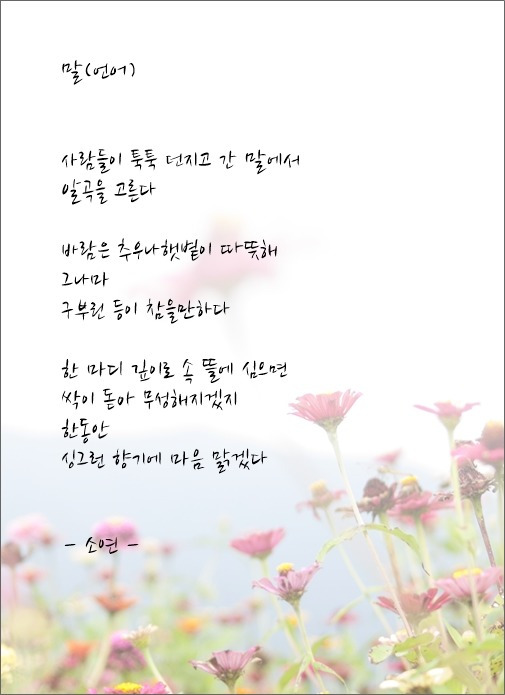 말(언어)
사람들이 툭툭 던지고 간 말에서
알곡을 고른다
바람은 추우나햇볕이 따뜻해
그나마
구부린 등이 참을만하다
한 마디 깊이로 속 뜰에 심으면
싹이 돋아 무성해지겠지
한동안
싱그런 향기에 마음 맑겠다
- 소연 -